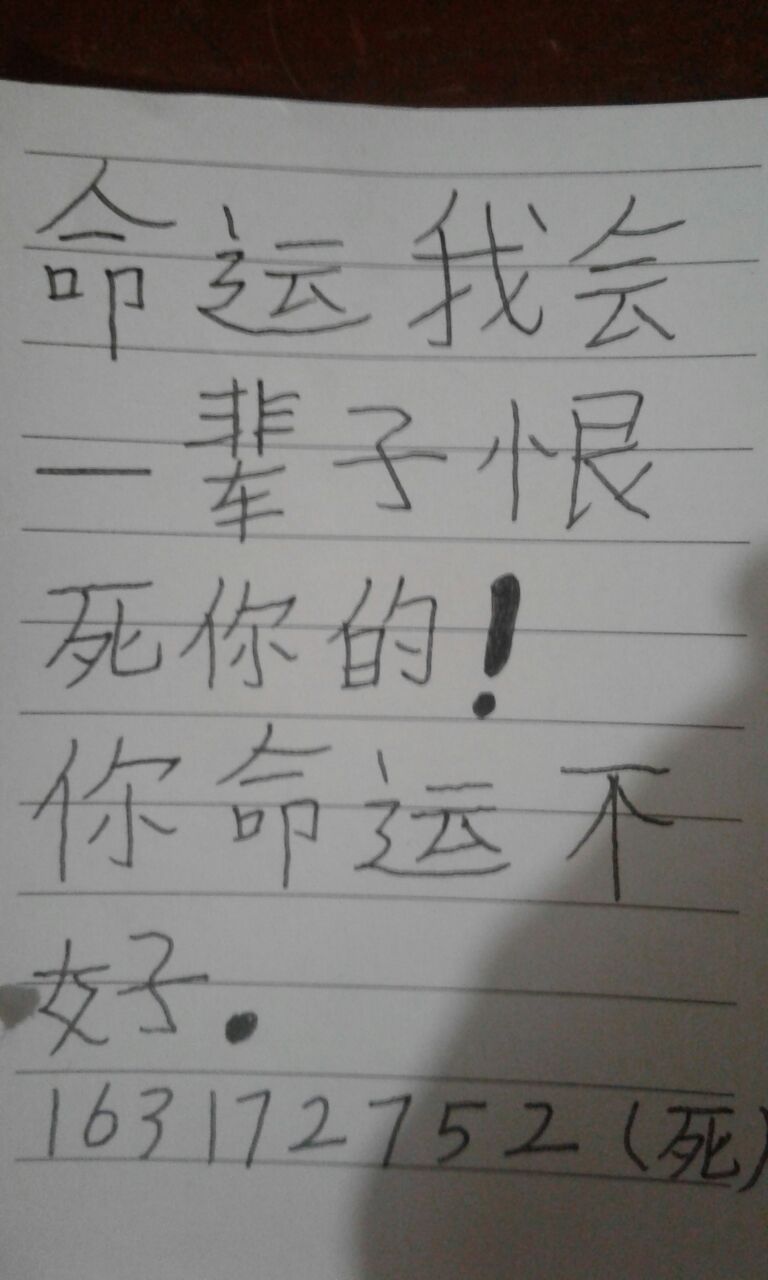 命运我会
一辈子恨
死你的！
你命运不
好.
163172752（死）